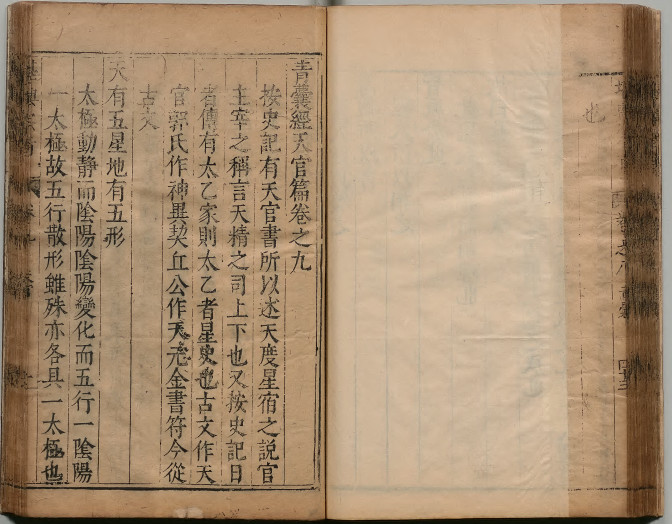 也
青囊經天官篇卷之九
按史記有天官書所以述天度星宿之説官
主宰之稱言天精之司上下也又按史記日
者傳有太乙家則太乙者星史也古文作天
官郭氏作神異契丘公作天元金書符今從
古文
天有五星地有五形
太極動靜而陰陽陰陽變化而五行一陰陽
一太極故五行散形雖殊亦各具一太極也